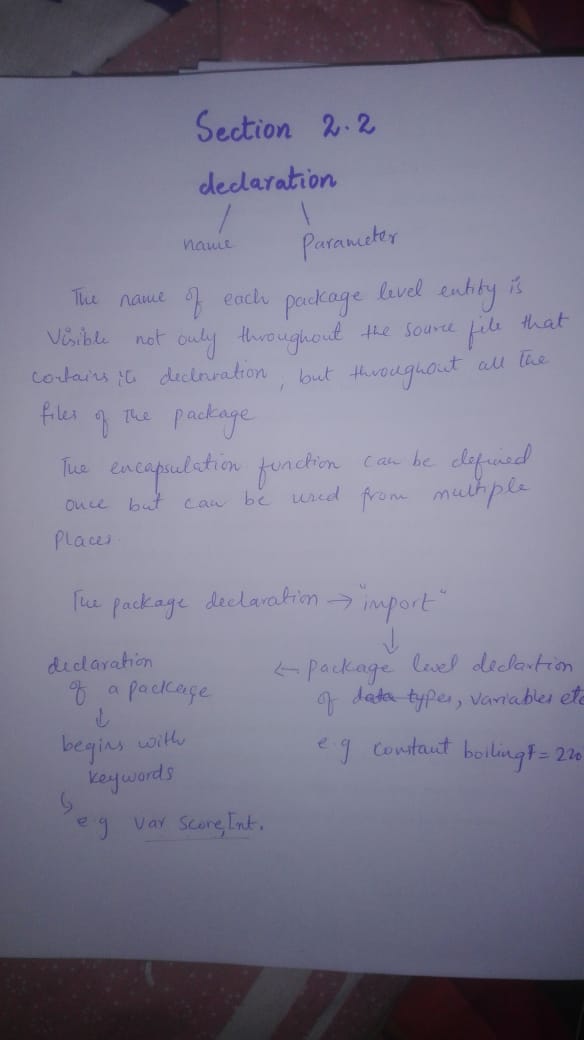 Section 2.2
declaration
name Parameter
The name of each package level entity is
Visible not only throughout the source file that
contains its declaration, but throughout all the
files of the package
The encapsulation function can be defined
once but can be used from multiple
Places.
The package declaration → "import"
↓
declaration
of a package
↓
begins with
keywords
e.g var Score,Int.
← package level declartion
of data types, variables etc
e.g constant boilingf = 220